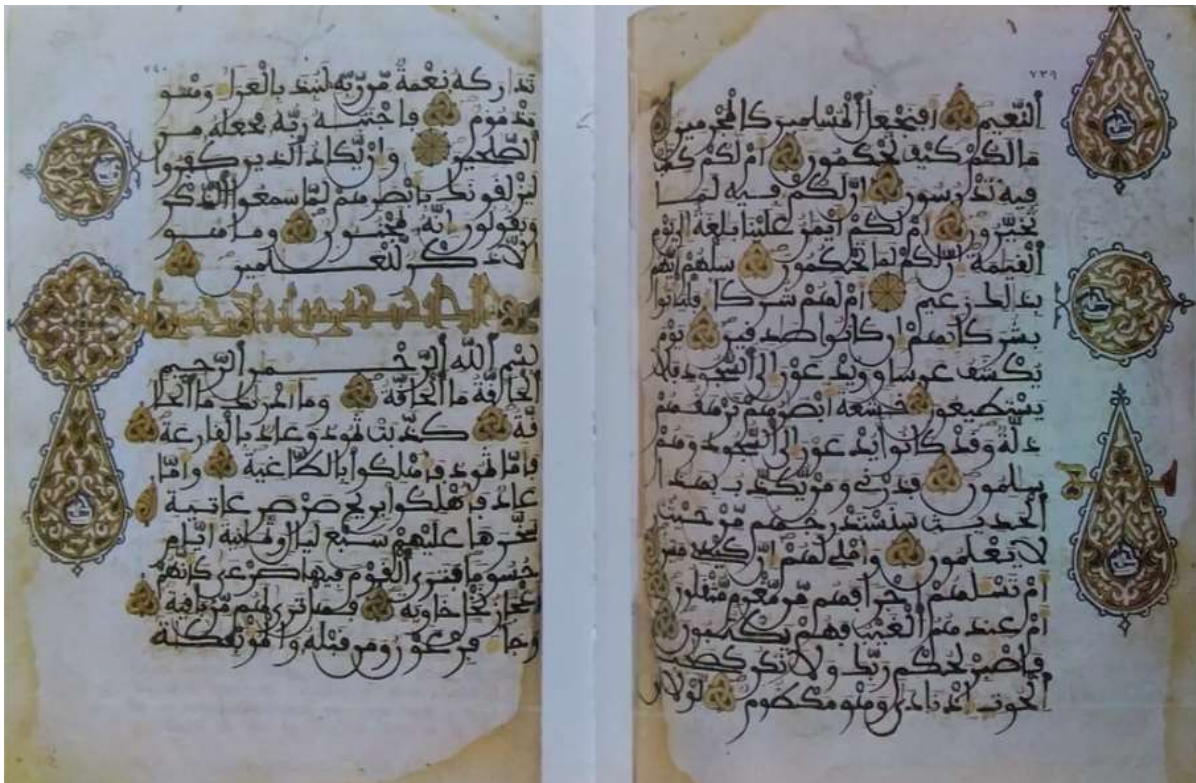 ٧٣٩
النَّعِيمِ أَفَنَجْعَلُ الْمُسْلِمِينَ كَالْمُجْرِمِينَ
مَا لَكُمْ كَيْفَ تَحْكُمُونَ أَمْ لَكُمْ كِتَٰبٌ
فِيهِ تَدْرُسُونَ إِنَّ لَكُمْ فِيهِ لَمَا
تَخَيَّرُونَ أَمْ لَكُمْ أَيْمَٰنٌ عَلَيْنَا بَٰلِغَةٌ إِلَىٰ يَوْمِ
الْقِيَٰمَةِ إِنَّ لَكُمْ لَمَا تَحْكُمُونَ سَلْهُمْ أَيُّهُمْ
بِذَٰلِكَ زَعِيمٌ أَمْ لَهُمْ شُرَكَاءُ فَلْيَأْتُوا
بِشُرَكَائِهِمْ إِنْ كَانُوا صَٰدِقِينَ يَوْمَ
يُكْشَفُ عَنْ سَاقٍ وَيُدْعَوْنَ إِلَى السُّجُودِ فَلَا
يَسْتَطِيعُونَ خَٰشِعَةً أَبْصَٰرُهُمْ تَرْهَقُهُمْ
ذِلَّةٌ وَقَدْ كَانُوا يُدْعَوْنَ إِلَى السُّجُودِ وَهُمْ
سَٰلِمُونَ فَذَرْنِي وَمَنْ يُكَذِّبُ بِهَٰذَا
الْحَدِيثِ سَنَسْتَدْرِجُهُمْ مِنْ حَيْثُ
لَا يَعْلَمُونَ وَأُمْلِي لَهُمْ إِنَّ كَيْدِي مَتِينٌ
أَمْ تَسْـَٔلُهُمْ أَجْرًا فَهُمْ مِنْ مَغْرَمٍ مُثْقَلُونَ
أَمْ عِنْدَهُمُ الْغَيْبُ فَهُمْ يَكْتُبُونَ
فَاصْبِرْ لِحُكْمِ رَبِّكَ وَلَا تَكُنْ كَصَٰحِبِ
الْحُوتِ إِذْ نَادَىٰ وَهُوَ مَكْظُومٌ لَوْلَا أَنْ
٧٤٠
تَدَٰرَكَهُ نِعْمَةٌ مِنْ رَبِّهِ لَنُبِذَ بِالْعَرَاءِ وَهُوَ
مَذْمُومٌ فَاجْتَبَٰهُ رَبُّهُ فَجَعَلَهُ مِنَ
الصَّٰلِحِينَ وَإِنْ يَكَادُ الَّذِينَ كَفَرُوا
لَيَزْلِقُونَكَ بِأَبْصَٰرِهِمْ لَمَّا سَمِعُوا الذِّكْرَ
وَيَقُولُونَ إِنَّهُ لَمَجْنُونٌ وَمَا هُوَ
إِلَّا ذِكْرٌ لِلْعَٰلَمِينَ
بِسْمِ اللَّهِ الرَّحْمَٰنِ الرَّحِيمِ
الْحَاقَّةُ مَا الْحَاقَّةُ وَمَا أَدْرَىٰكَ مَا الْحَا
قَّةُ كَذَّبَتْ ثَمُودُ وَعَادٌ بِالْقَارِعَةِ
فَأَمَّا ثَمُودُ فَأُهْلِكُوا بِالطَّاغِيَةِ وَأَمَّا
عَادٌ فَأُهْلِكُوا بِرِيحٍ صَرْصَرٍ عَاتِيَةٍ
سَخَّرَهَا عَلَيْهِمْ سَبْعَ لَيَالٍ وَثَمَٰنِيَةَ أَيَّامٍ
حُسُومًا فَتَرَى الْقَوْمَ فِيهَا صَرْعَىٰ كَأَنَّهُمْ
أَعْجَازُ نَخْلٍ خَاوِيَةٍ فَهَلْ تَرَىٰ لَهُمْ مِنْ بَاقِيَةٍ
وَجَاءَ فِرْعَوْنُ وَمَنْ قَبْلَهُ وَالْمُؤْتَفِكَٰتُ